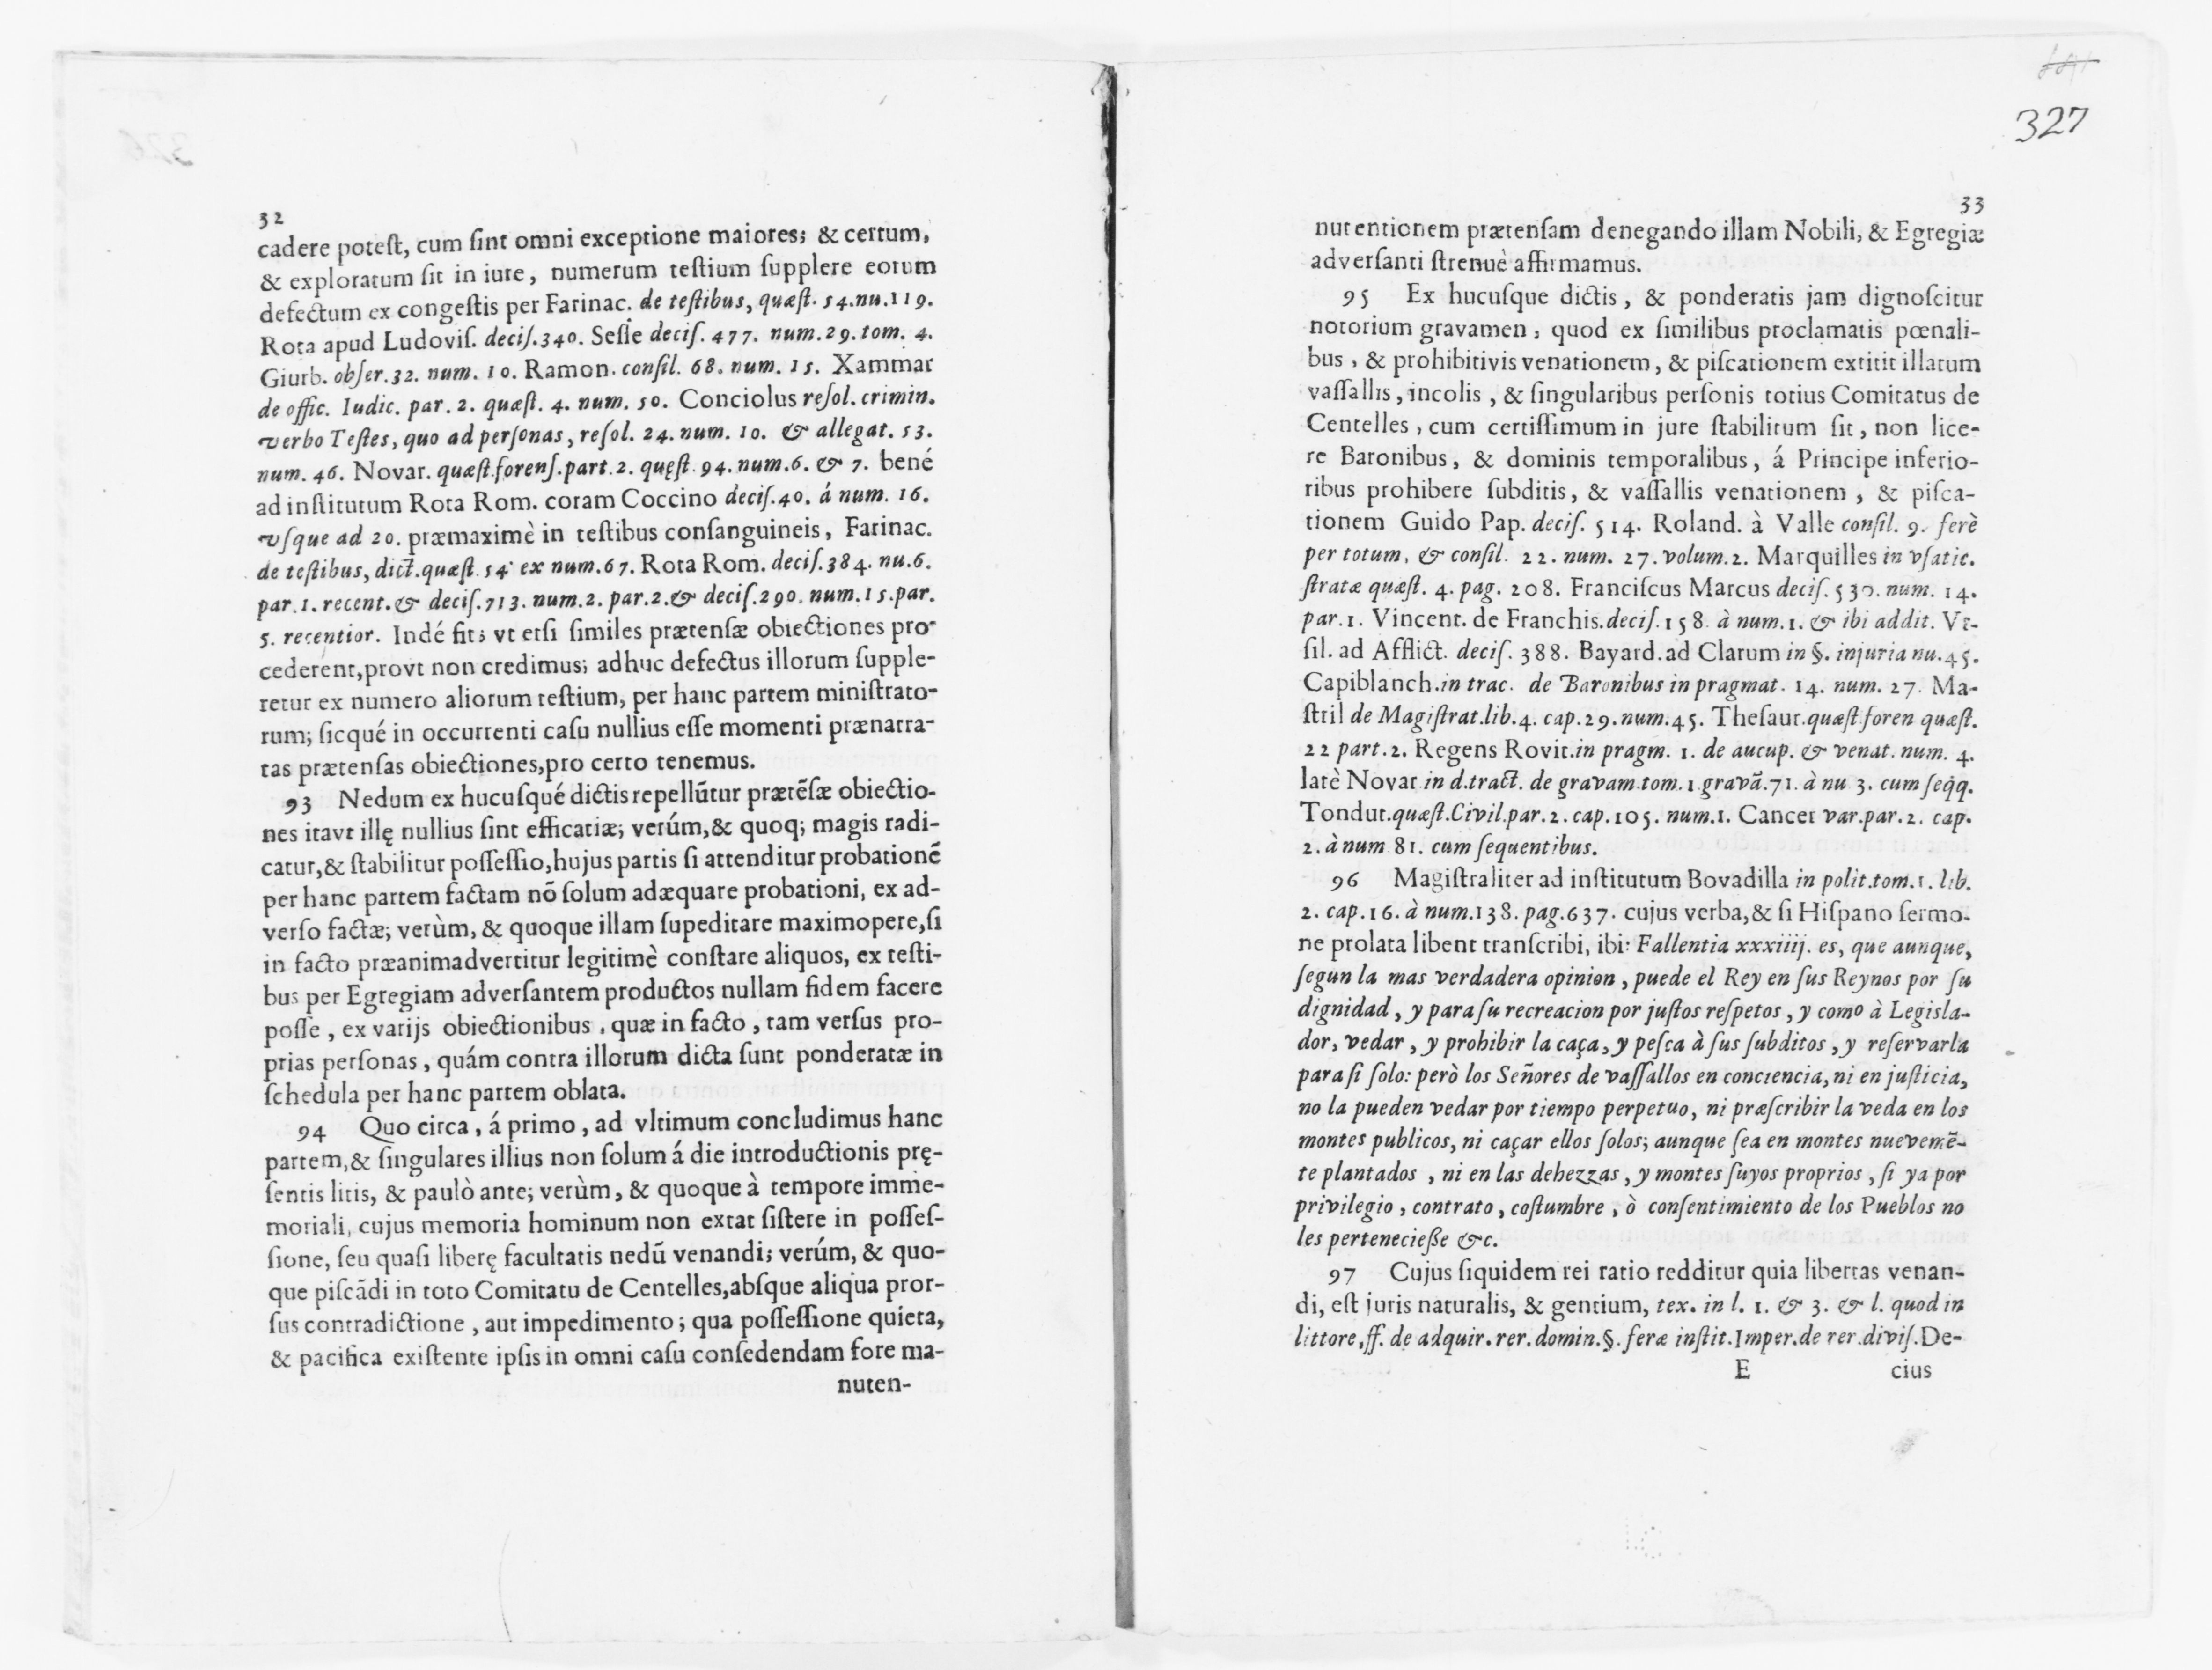 32
cadere poteſt, cum ſint omni exceptione maiores; & certum,
& exploratum ſit in iure, numerum teſtium ſupplere eorum
defectum ex congeſtis per Farinac. de teſtibus, quæſt. 54.nu.119.
Rota apud Ludoviſ. deciſ.340. Seſſe deciſ. 477. num.29.tom. 4.
Giurb. obſer.32. num. 10. Ramon. conſil. 68. num. 15. Xammar
de offic. Iudic. par. 2. quæſt. 4. num. 50. Conciolus reſol. crimin.
verbo Teſtes, quo ad perſonas, reſol. 24. num. 10. & allegat. 53.
num. 46. Novar. quæſt.forenſ.part.2. quęſt. 94.num.6. & 7. bené
ad inſtitutum Rota Rom. coram Coccino deciſ.40. á num. 16.
vſque ad 20. præmaximè in teſtibus conſanguineis, Farinac.
de teſtibus, dict.quæſt. 54. ex num.67. Rota Rom. deciſ.384. nu.6.
par.1. recent.& deciſ.713. num.2. par.2.& deciſ.290. num.15.par.
5. recentior. Indé fit; vt etſi ſimiles prætenſæ obiectiones pro-
cederent,provt non credimus; adhuc defectus illorum ſupple-
retur ex numero aliorum teſtium, per hanc partem miniſtrato-
rum; ſicqué in occurrenti caſu nullius eſſe momenti prænarra-
tas prætenſas obiectiones,pro certo tenemus.
93 Nedum ex hucuſqué dictis repellūtur prætēſæ obiectio-
nes itavt illę nullius ſint efficatiæ; verúm,& quoq; magis radi-
catur,& ſtabilitur poſſeſſio,hujus partis ſi attenditur probationē
per hanc partem factam nō ſolum adæquare probationi, ex ad-
verſo factæ; verùm, & quoque illam ſupeditare maximopere,ſi
in facto præanimadvertitur legitimè conſtare aliquos, ex teſti-
bus per Egregiam adverſantem productos nullam fidem facere
poſſe, ex varijs obiectionibus, quæ in facto, tam verſus pro-
prias perſonas, quám contra illorum dicta ſunt ponderatæ in
ſchedula per hanc partem oblata.
94 Quo circa, á primo, ad vltimum concludimus hanc
partem,& ſingulares illius non ſolum á die introductionis prę-
ſentis litis, & paulò ante; verùm, & quoque à tempore imme-
moriali, cujus memoria hominum non extat ſiſtere in poſſeſ-
ſione, ſeu quaſi liberę facultatis nedū venandi; verúm, & quo-
que piſcādi in toto Comitatu de Centelles,abſque aliqua pror-
ſus contradictione, aut impedimento; qua poſſeſſione quieta,
& pacifica exiſtente ipſis in omni caſu conſedendam fore ma-
nuten-
327
33
nutentionem prætenſam denegando illam Nobili, & Egregiæ
adverſanti ſtrenuè affirmamus.
95 Ex hucuſque dictis, & ponderatis jam dignoſcitur
notorium gravamen, quod ex ſimilibus proclamatis pœnali-
bus, & prohibitivis venationem, & piſcationem extitit illatum
vaſſallis, incolis, & ſingularibus perſonis totius Comitatus de
Centelles, cum certiſſimum in jure ſtabilitum ſit, non lice-
re Baronibus, & dominis temporalibus, á Principe inferio-
ribus prohibere ſubditis, & vaſſallis venationem, & piſca-
tionem Guido Pap. deciſ. 514. Roland. à Valle conſil. 9. ferè
per totum, & conſil. 22. num. 27. volum.2. Marquilles in vſatic.
ſtratæ quæſt. 4. pag. 208. Franciſcus Marcus deciſ. 530. num. 14.
par.1. Vincent. de Franchis.deciſ.158. à num.1. & ibi addit. Vr-
ſil. ad Afflict. deciſ. 388. Bayard.ad Clarum in §. injuria nu.45.
Capiblanch.in trac. de Baronibus in pragmat. 14. num. 27. Ma-
ſtril de Magiſtrat.lib.4. cap.29.num.45. Theſaur.quæſt.foren quæſt.
22 part.2. Regens Rovit.in pragm. 1. de aucup. & venat. num. 4.
latè Novar in d.tract. de gravam.tom.1.gravā.71. à nu 3. cum ſeqq.
Tondut.quæſt.Civil.par.2. cap.105. num.1. Cancer var.par.2. cap.
2. à num 81. cum ſequentibus.
96 Magiſtraliter ad inſtitutum Bovadilla in polit.tom.1. lib.
2. cap.16. à num.138. pag.637. cujus verba,& ſi Hiſpano ſermo-
ne prolata libent tranſcribi, ibi: Fallentia xxxiiij. es, que aunque,
ſegun la mas verdadera opinion, puede el Rey en ſus Reynos por ſu
dignidad, y para ſu recreacion por juſtos reſpetos, y como à Legisla-
dor, vedar, y prohibir la caça, y peſca à ſus ſubditos, y reſervarla
para ſi ſolo: però los Señores de vaſſallos en conciencia, ni en juſticia,
no la pueden vedar por tiempo perpetuo, ni præſcribir la veda en los
montes publicos, ni caçar ellos ſolos; aunque ſea en montes nuevemē-
te plantados, ni en las dehezzas, y montes ſuyos proprios, ſi ya por
privilegio, contrato, coſtumbre, ò conſentimiento de los Pueblos no
les pertenecieße &c.
97 Cujus ſiquidem rei ratio redditur quia libertas venan-
di, eſt juris naturalis, & gentium, tex. in l. 1. & 3. & l. quod in
littore,ff. de adquir.rer.domin.§. feræ inſtit.Imper.de rer.diviſ.De-
E cius